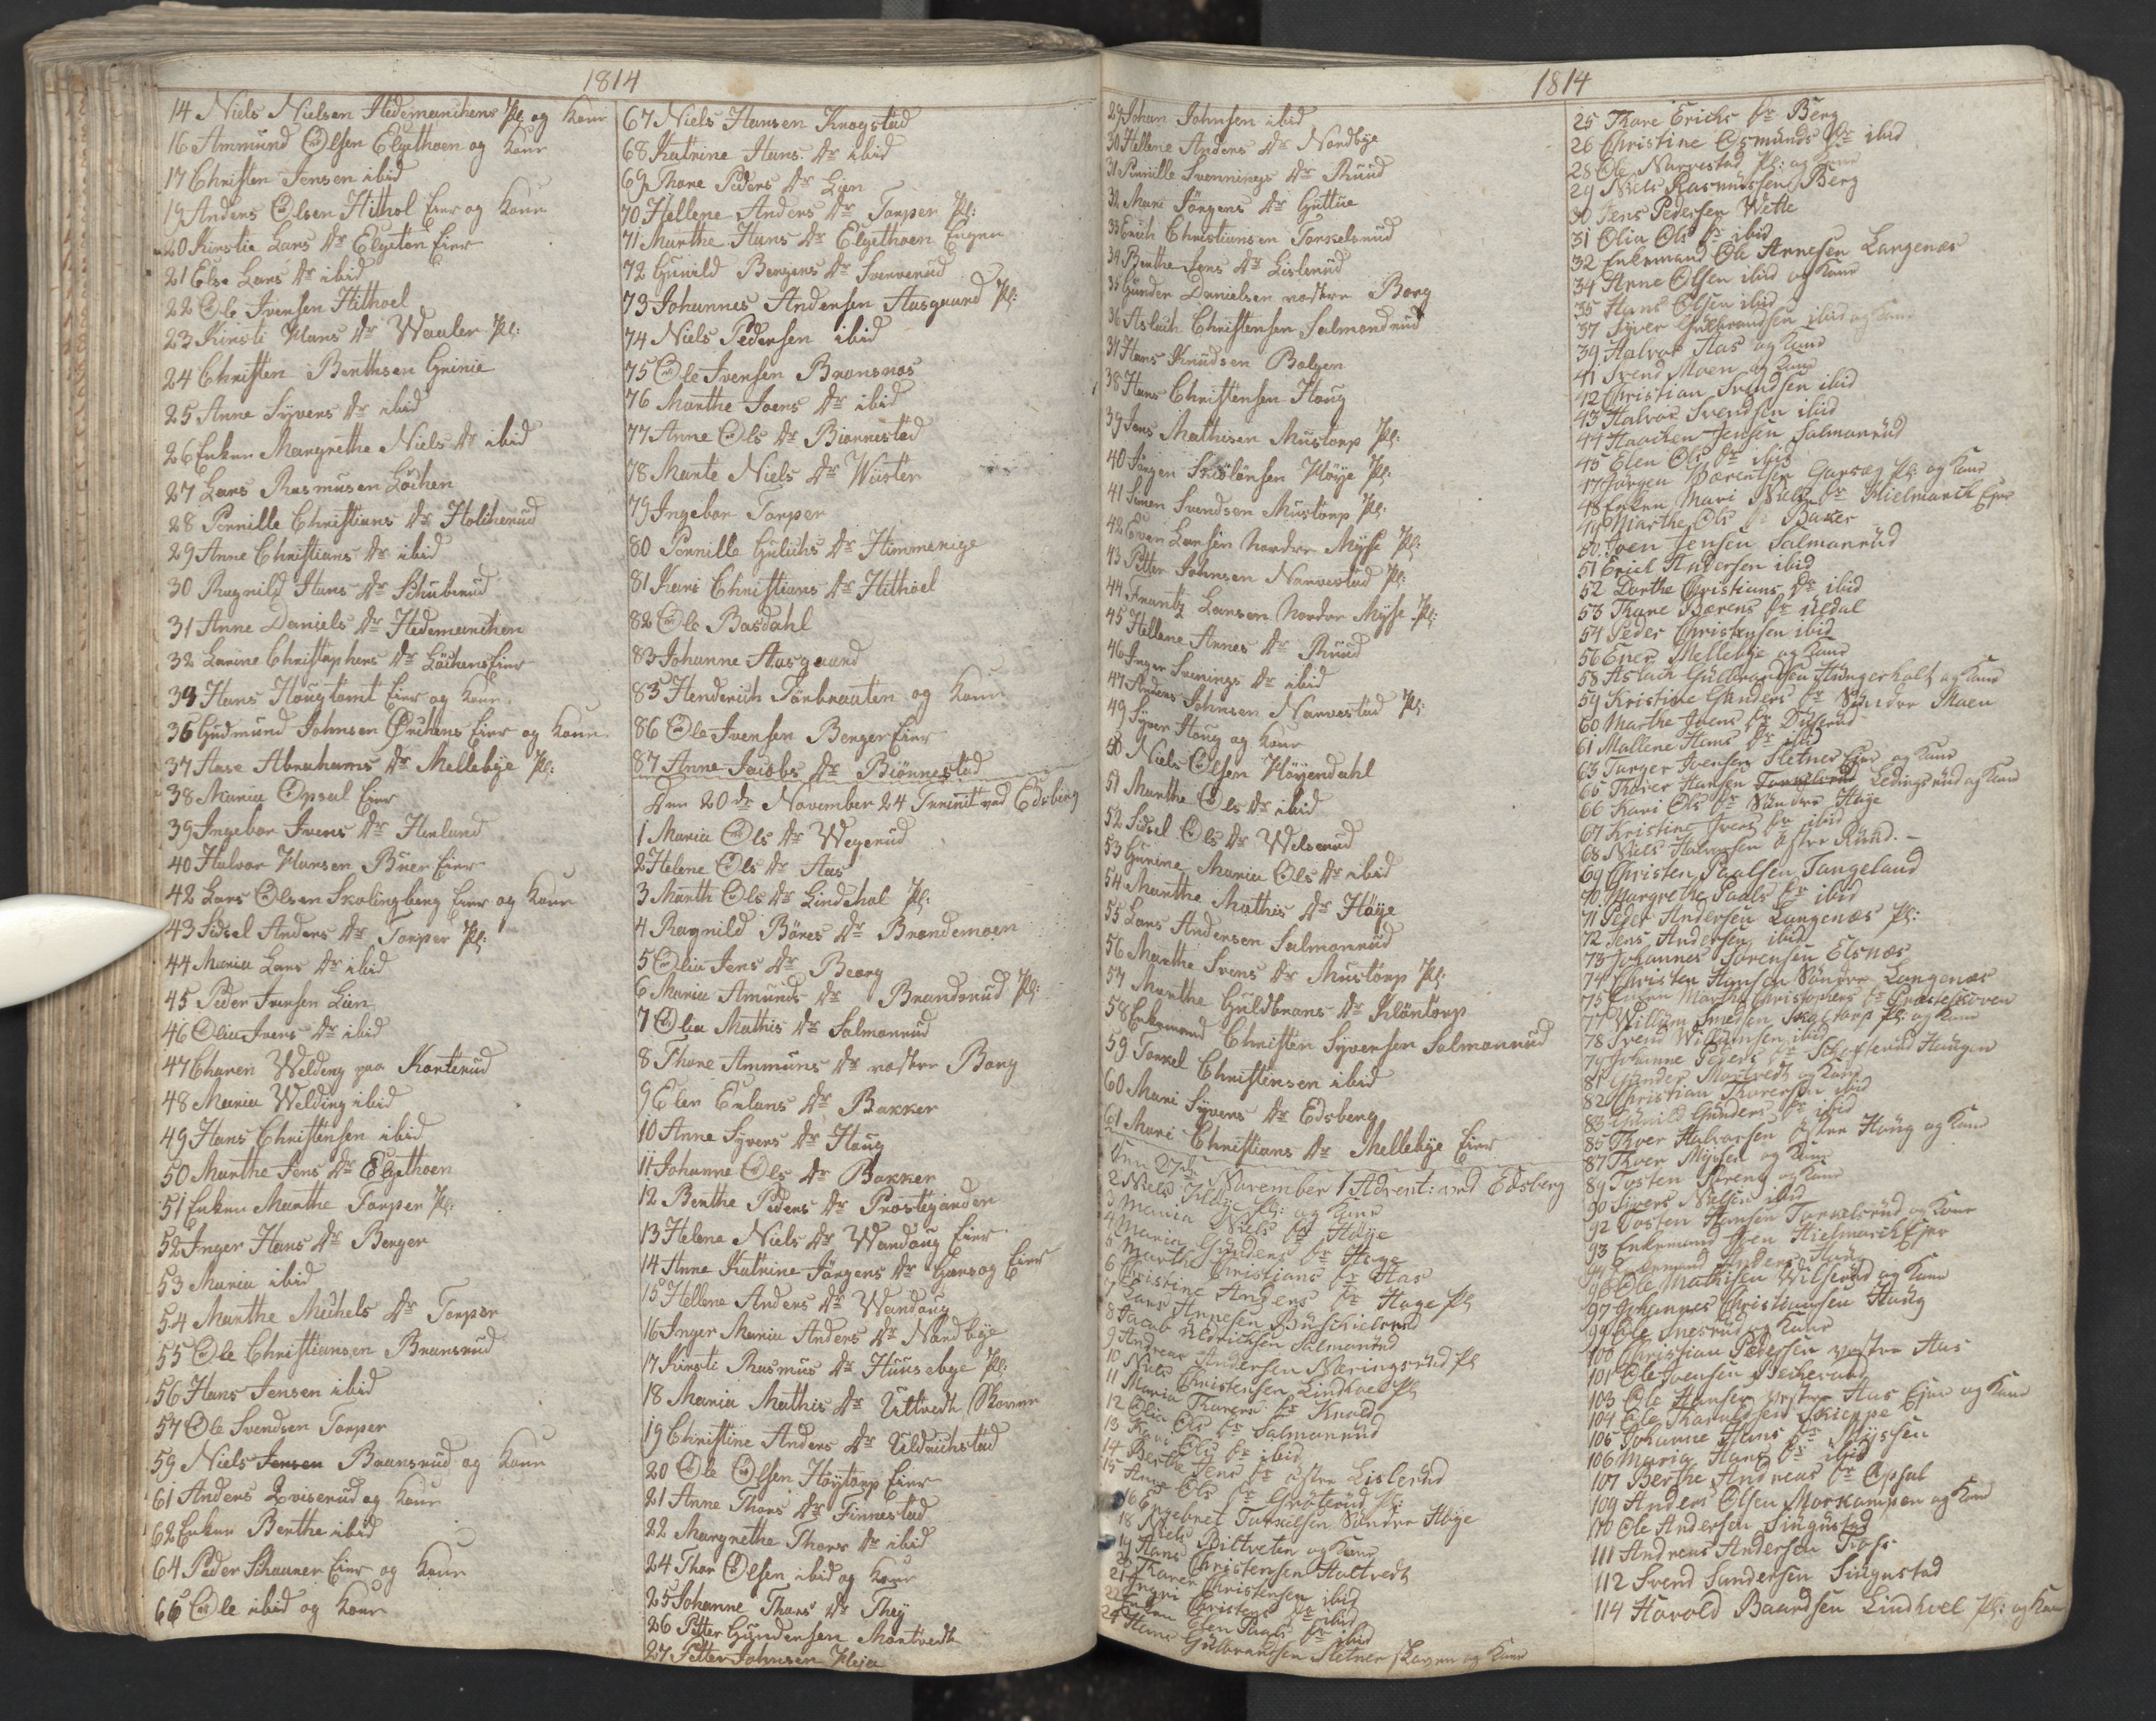 1814
14 Niels Nielsen Hedemarchens Pl: og Kone
16 Ammund Olsen Elgethoen og Kone
17 Christen Jensen ibid
19 Anders Olsen Hithol Eier og Kone
20 Kirstie Lars Dr Elgeton Eier
21 Else Lars Dr ibid
22 Ole Ivensen Hithoel
23 Kirsti Hans Dr Waaler Pl:
24 Christen Benthsen Grinie
25 Anne Syvers Dr ibid
26 Enken Margrethe Niels Dr ibid
27 Lars Rasmusen Löchen
28 Pernille Christians Dr Holikerud
29 Anne Christians Dr ibid
30 Ragnild Hans Dr Schuberud
31 Anne Daniels Dr Hedemarchen
32 Larine Christophers Dr Löchens Eier
34 Hans Hougtomt Eier og Kone
36 Gudmund Johnsen Eier og Kone
37 Aase Abrahams Dr Mellebye Pl:
38 Maria Opsal Eier
39 Ingebor Ivers Dr Herland
40 Halvor Hansen Buer Eier
42 Lars Olsen Skolingberg Eier og Kone
43 Sidsel Anders Dr Torper Pl:
44 Maria Lars Dr ibid
45 Peder Ivensen Lien
46 Olia Ivers Dr ibid
47 Charen Welding paa Korterud
48 Maria Welding ibid
49 Hans Christensen ibid
50 Marthe Jens Dr Elgethoen
51 Enken Marthe Torper Pl:
52 Inger Hans Dr Berger
53 Maria ibid
54 Marthe Michels Dr Torper
55 Ole Christiansen Bransrud
56 Hans Jensen ibid
57 Ole Svendsen Torper
59 Niels Jensen Braansrud og Kone
61 Anders Qviserud og Kone
62 Enken Berthe ibid
64 Peder Skauner Eier og Kone
66 Ole ibid og Kone
67 Niels Hansen Knogstad
68 Katrine Hans Dr ibid
69 Thore Peders Dr Lien
70 Hellene Anders Dr Torper Pl:
71 Marthe Hans Dr Elgethoen
72 Gunild Bergers Dr Svenverud
73 Johannes Andersen Aasgaard Pl:
74 Niels Pedersen ibid
75 Ole Ivensen Bronsnos
76 Marthe Joens Dr ibid
77 Anne Ols Dr Biønnestad
78 Marte Niels Dr Wüster
79 Ingebor Torper
80 Pernille Guluchs Dr Himmerige
81 Kari Christians Dr Hithoel
82 Ole Basdahl
83 Johanne Aasgaard
85 Henderich Törkraaten og Kone
86 Ole Ivensen Berger Eier
87 Anne Jacobs Dr Biönnestad
Den 20de November 24 Trinit: ved Edsberg
1 Maria Ols Dr Wegerud
2 Helene Ols Dr Aas
3 Marth Ols Dr Lindehol Pl:
4 Ragnild Böres Dr Brandemoen
5 Olia Jens Dr Beorg
6 Maria Amunds Dr Brandsrud Pl:
7 Olia Mathis Dr Salmonrud
8 Thore Ammuns Dr vestre Borg
9 Elen Erlans Dr Bakker
10 Anne Syvers Dr Houg
11 Johanne Ols Dr Bakker
12 Berthe Peders Dr Prostegarden
13 Helene Niels Dr Wandoug Eier
14 Anne Katrine Jörgens Dr Garsog Eier
15 Hellene Anders Dr Wandoug
16 Inger Maria Anders Dr Nordbye
17 Kirsti Rasmus Dr Huusebye Pl:
18 Maria Mathis Dr Uttvedt Skoven
19 Christine Anders Dr Uldrichstad
20 Ole Olsen Höytorp Eier
21 Anne Thors Dr Finnestad
22 Margrethe Thors Dr ibid
24 Thor Olsen ibid og Kone
25 Johanne Thors Dr Thøy
26 Petter Gundersen Mortvedt
27 Petter Johnsen Heja
1814
29 Johan Johnsen ibid
30 Hellene Anders Dr Nordbye
31 Pernille Svennings Dr Ruud
32 Mari Jörgens Dr Guttue
33 Erich Christiansen Torkelsrud
34 Berthe Jens Dr Lislerud
35 Gunder Danielsen vestre Borg
36 Aslach Christensen Salmonrud
37 Hans Knudsen Bolgen
38 Hans Christensen Houg
39 Jens Mathisen Mustorp Pl:
40 Jörgen Höye Pl:
41 Simen Svendsen Mustorp Pl:
42 Even Larsen Nordre Mysse Pl:
43 Petter Johnsen Narvestad Pl:
44 Frantz Larsen Nordre Mysse Pl:
45 Hellene Arnes Dr Ruud
46 Inger Svenings Dr ibid
47 Anders Johnsen Narvestad Pl:
49 Syver Houg og Kone
50 Niels Olsen Höyendahl
51 Marthe Ols Dr ibid
52 Sidsel Ols Dr Welserud
53 Gunine Maria Ols Dr ibid
54 Marthe Mathis Dr Höye
55 Lars Andersen Salmonrud
56 Marthe Svens Dr Mustorp Pl:
57 Marthe Guldbrans Dr Klöntorp
58 Enkemand Christen Syversen Salmonrud
59 Torkel Christensen ibid
60 Mari Syvers Dr Edsberg
61 Mari Christians Dr Mellebye Eier
Den 27de November 1 Advent: ved Edsberg
2 Niels Höye Pl: og Kone
3 Maria Niels Dr Höye
4 Maria Gunders Dr Høye
5 Marthe Christians Dr Aas
6 Christine Anders Dr Hage Pl
7 Lars Arnesen Buskierud
8 Jacob Uldrichsen Salmonrud
9 Andreas Andersen Næringsrud Pl
10 Niels Christensen Lindhoel Pl
11 Maria Thorers Dr Knold
12 Olia Ols Dr Salmonrud
13 Kari Ols Dr ibid
14 Berthe Jens Dr østre Lislerud
15 Anne Ols Dr Gröterud Pl:
16 Engebret Torkelsen Søndre Høye
18 Niels Biltveten og Kone
19 Hans Christensen Haltvedt
20 Thorer Christensen ibid
21 Ingri Christens Dr ibid
22 Enken Elen Pauls Dr ibid
24 Hans Gulbrandsen Sletner Skoven og Kone
25 Thore Erichs Dr Berg
26 Christine Osmunds Dr ibid
28 Ole Narvestad Pl: og Kone
29 Niels Rasmussen Berg
30 Jens Pedersen Wette
31 Olia Ols Dr ibid
32 Enkemand Ole Arnesen Langenæs
34 Arne Olsen ibid og Kone
35 Hans Olsen ibid
37 Syver Gulbrandsen ibid og Kone
39 Halvor Aas og Kone
41 Svend Moen og Kone
42 Christian Svendsen ibid
43 Halvor Svendsen ibid
44 Haachen Jensen Salmonrud
45 Elen Ols Dr ibid
47 Jörgen Borentsen Garseg Pl: og Kone
48 Enken Mari Niels Dr Hielmarck Ejer
49 Marthe Ols Dr Baker
50 Joen Jensen Salmonrud
51 Erick Andersen ibid
52 Dorthe Christians Dr ibid
53 Thore Borens Dr Uldal
54 Peder Christensen ibid
56 Ener Mellebye og Kone
58 Aslach Gulbrandsen Hungerholt og Kone
59 Kristine Gunders Dr Søndre Moen
60 Marthe Joens Dr Dillerud
61 Mallene Hans Dr ibid
63 Turger Joensen Sletner Ejer og Kone
65 Thorer Hansen Ledingsrud og Kone
66 Kari Ols Dr Søndre Høye
67 Kristine Ivers Dr ibid
68 Niels Halvorsen østre Ruud.
69 Christen Paalsen Tangeland
70 Margrethe Paals Dr ibid
71 Peder Andersen Langenæs Pl:
72 Jens Andersen ibid
73 Johannes Sörensen Elsnæs
74 Christen Hansen Søndre Langenæs
75 Enken Marthe Christophers Dr Præsteskoven
77 Willum Smedsen Skoltorp Pl: og Kone
78 Svend Willumsen ibid
79 Johanne Peders Dr Schofterud Haugen
81 Gunder Mortvedt og Kone
82 Christian Thorersen ibid
83 Gunild Gunders Dr ibid
85 Thoer Halvorsen østre Haug og Kone
87 Thoer Myssen og Kone
89 Torsten Sereng og Kone
90 Sivers Nilsen ibid
92 Torsten Hansen Torkelsrud og Kone
93 Enkemand Joen Hielmarck Ejer
94 Enkemand Anders Haug
96 Ole Mathisen Wilserud og Kone
97 Johannes Christiansen Haug
99 Ole Snesrud og Kone
100 Christian Pedersen vestre Aas
101 Ole Joensen Beckerud
103 Ole Hansen vestre Aas Ejer og Kone
104 Ole Haraldsen Skieppe
105 Johanne Hans Dr Myssen
106 Maria Hans Dr ibid
107 Berthe Andreas Dr Opsal
109 Anders Olsen Morkampen og Kone
110 Ole Andersen Singustad
111 Andreas Andersen Foss
112 Svend Gundersen Singustad
114 Harold Baardsen Lindhoel Pl: og Kone